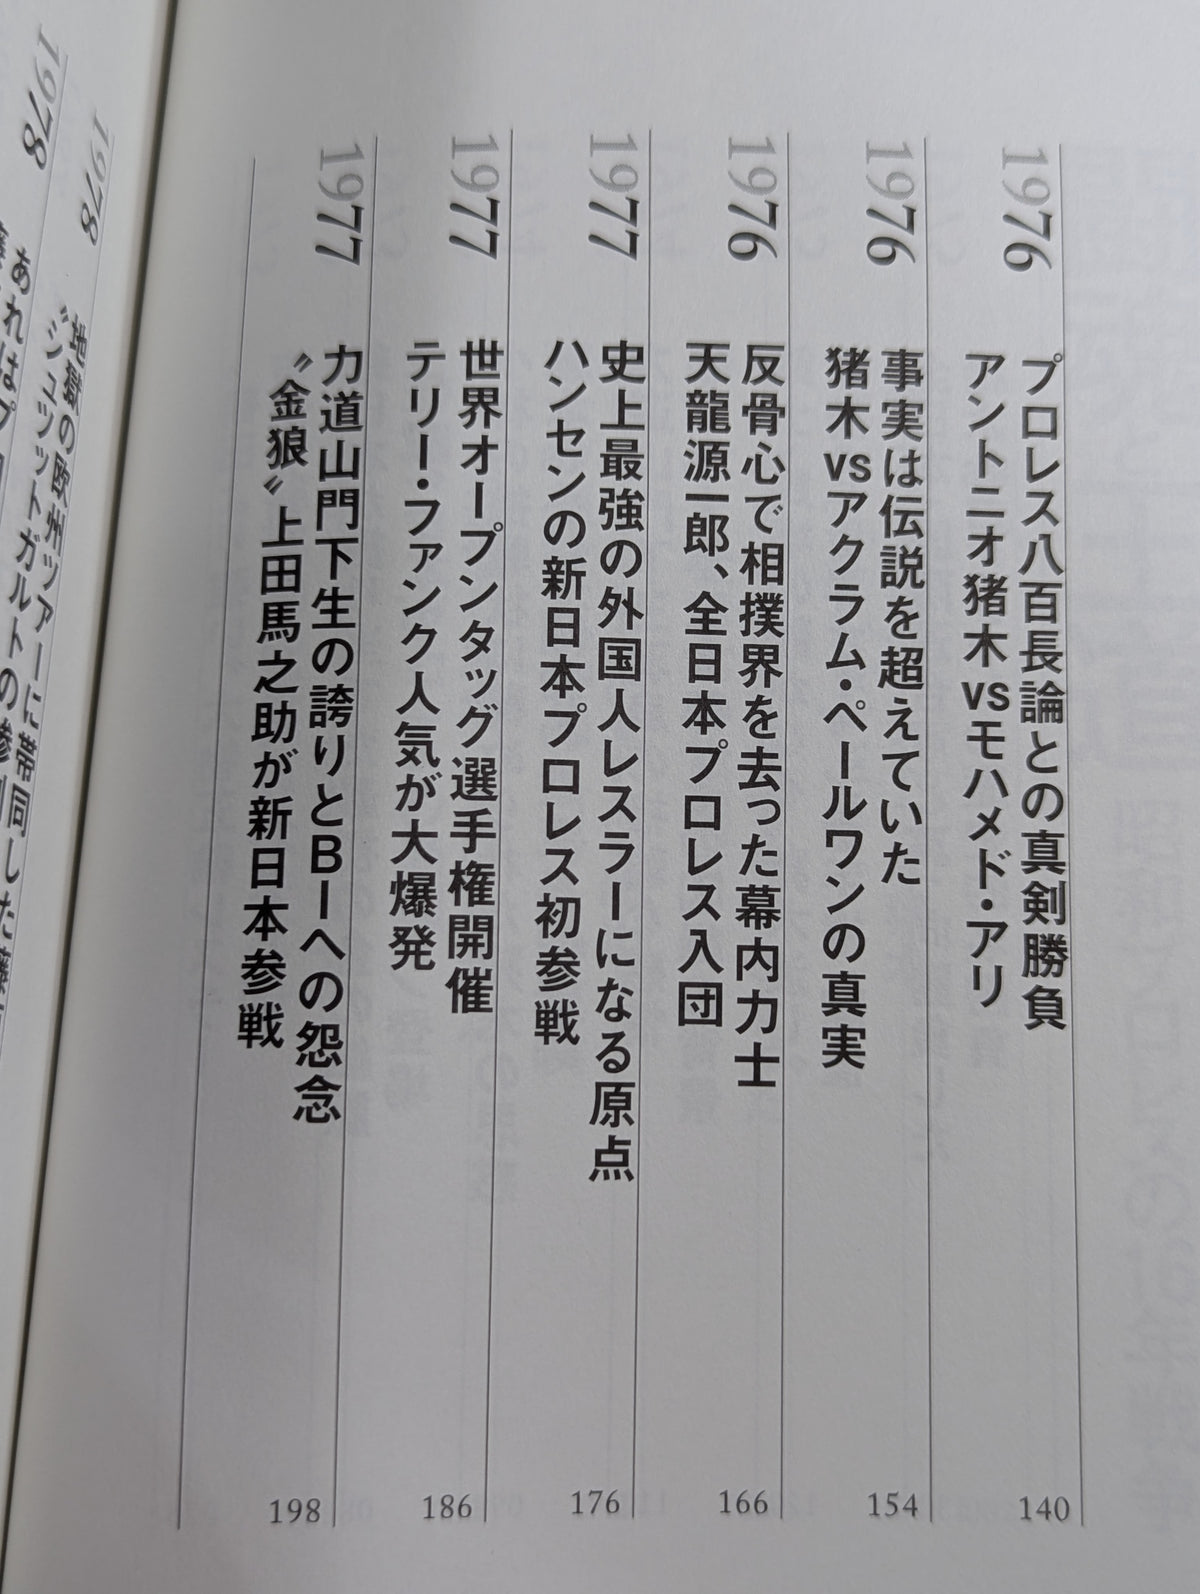 1976
プロレス八百長論との真剣勝負
アントニオ猪木vsモハメド・アリ
140
1976
事実は伝説を超えていた
猪木vsアクラム・ペールワンの真実
154
1976
反骨心で相撲界を去った幕内力士
天龍源一郎、全日本プロレス入団
166
1977
史上最強の外国人レスラーになる原点
ハンセンの新日本プロレス初参戦
176
1977
世界オープンタッグ選手権開催
テリー・ファンク人気が大爆発
186
1977
力道山門下生の誇りとBIへの怨念
〝金狼〟上田馬之助が新日本参戦
198
1978
地獄の欧州ツアーに帯同した藤
〝シュツットガルトの惨劇
1978
あれはプロ